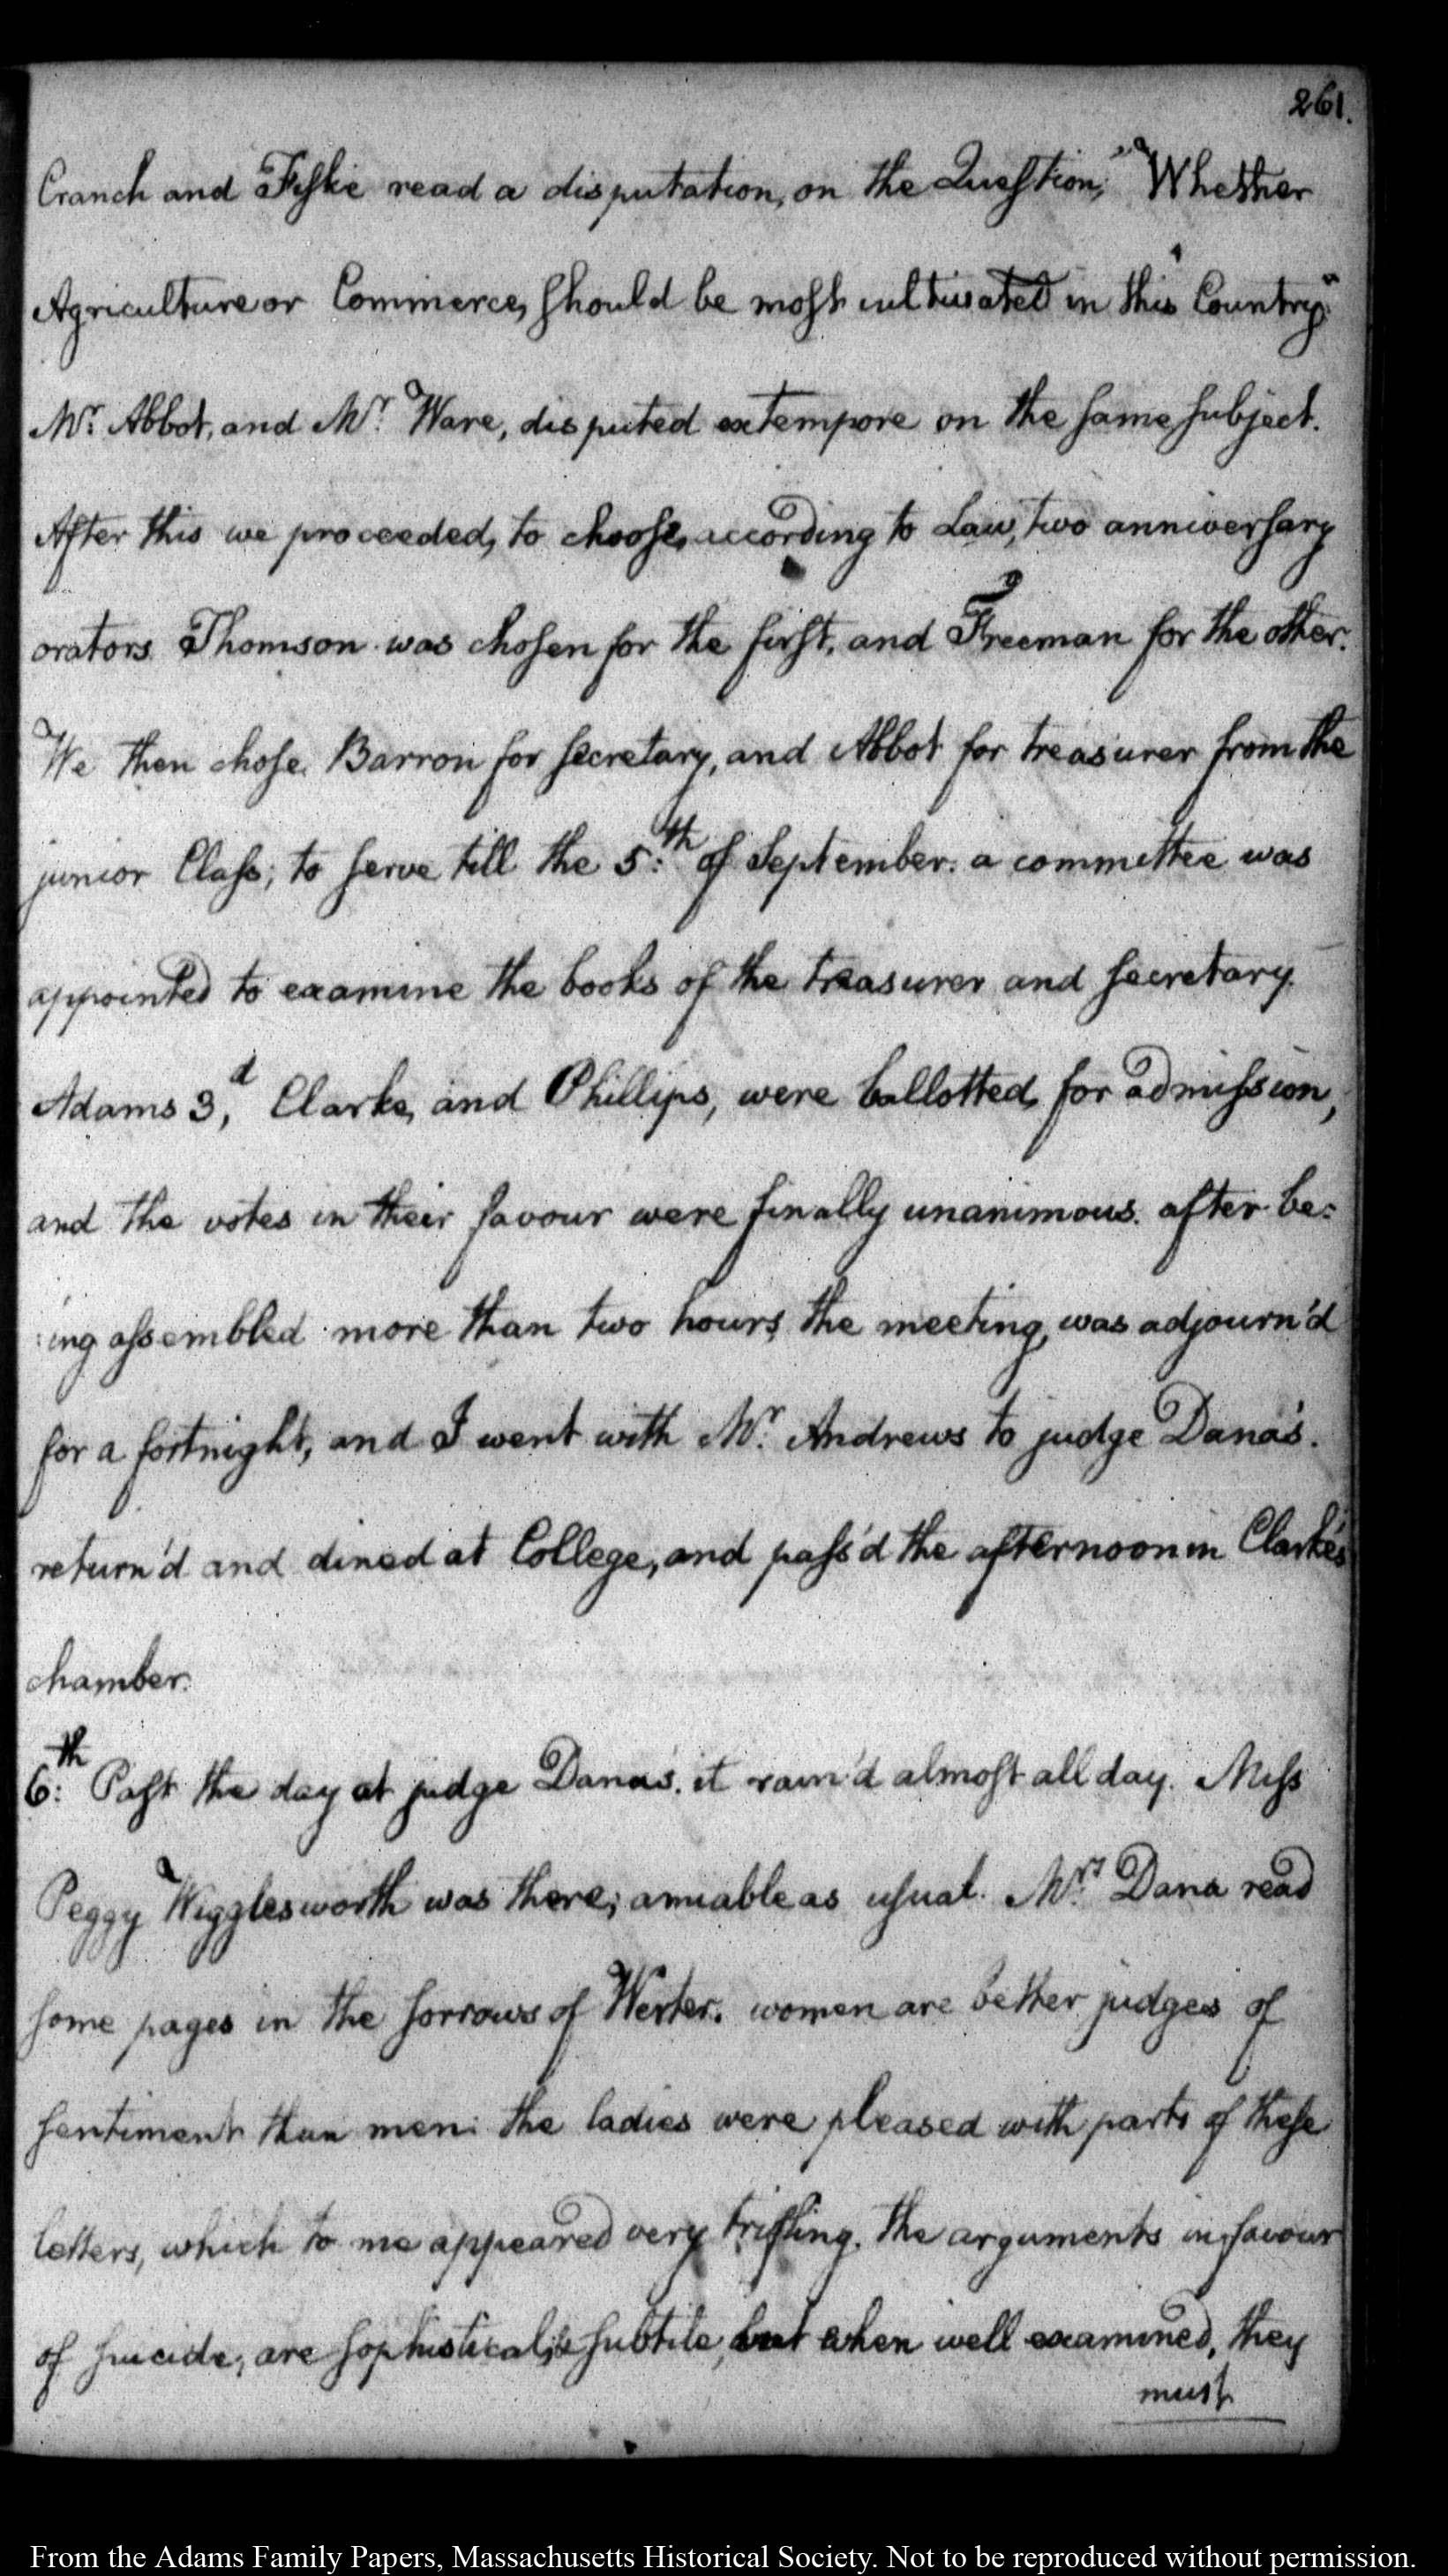 261.
Cranch and Fiske read a disputation, on the Question, "Whether
Agriculture or Commerce, should be most cultivated in this Country."
Mr. Abbot, and Mr. Ware, disputed extempore on the same subject.
After this we proceeded, to choose, according to Law, two anniversary
orators. Thomson was chosen for the first, and Freeman for the other.
We then chose Barron for secretary, and Abbot for treasurer from the
junior Class; to serve till the 5:th of September. a committee was
appointed to examine the books of the treasurer and secretary.
Adams 3,d Clarke, and Phillips, were ballotted, for admission,
and the votes in their favour were finally unanimous. after be:
:ing assembled more than two hours, the meeting, was adjourn'd
for a fortnight, and I went with Mr. Andrews to judge Dana's.
return'd and dined at College, and pass'd the afternoon in Clarke's
chamber.
6:th Past the day at judge Dana's. it rain'd almost all day. Miss
Peggy Wigglesworth was there; amiable as usual. Mrs. Dana read
some pages in the sorrows of Werter. women are better judges of
sentiment than men: the ladies were pleased with parts of these
letters, which to me appeared very trifling. The arguments in favour
of suicide, are sophistical, & subtile, but when well examined, they
must
From the Adams Family Papers, Massachusetts Historical Society. Not to be reproduced without permission.